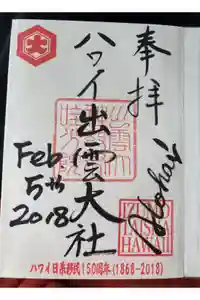 奉拝
ハワイ出雲大社
Feb
5th
2018
Aloha!
IZUMO
TAISHA
HAWAII
ハワイ日系移民150周年(1868-2018)